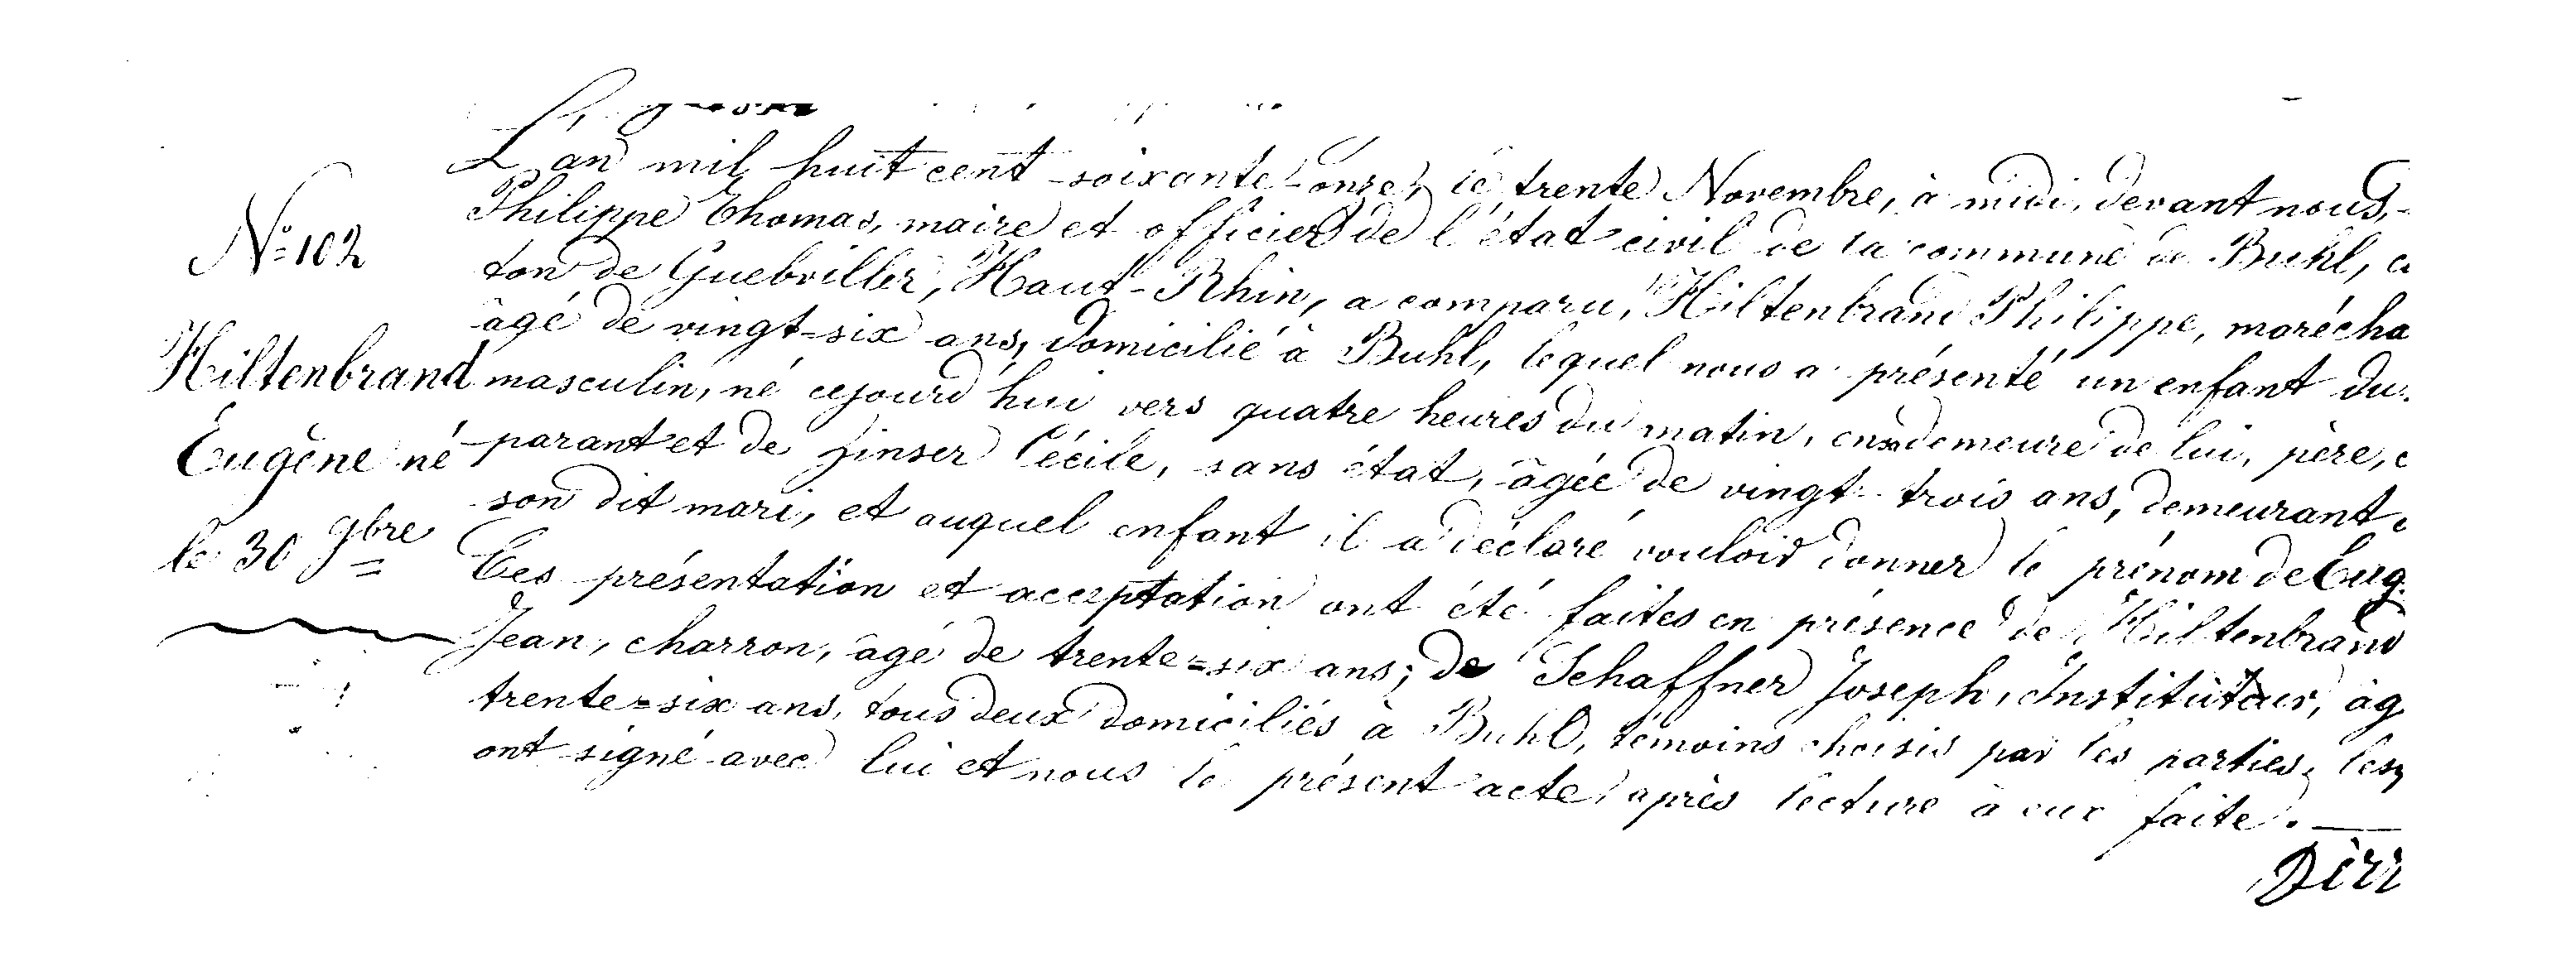 L'an mil huit cent soixante-onze, le trente Novembre, à midi, devant nous,
Philippe Thomas, maire et officier de l'état civil de la commune de Buhl, c
ton de Guebviller, Haut-Rhin, a comparu, Hiltenbrand Philippe, marécha
âgé de vingt-six ans, domicilié à Buhl, lequel nous a présenté un enfant du
masculin, né cejourd'hui vers quatre heures du matin, en demeure de lui, père,
parant et de Finser Cécile, sans état, âgée de vingt-trois ans, demeurant
son dit mari, et auquel enfant il a déclaré vouloir donner le prénom de Eug
Ces présentation et acceptation ont été faites en présence de Hiltenbrand
Jean, charron, âgé de trente=six ans; de Schaffner Joseph, Instituteur, âg
trente=six ans, tous deux domiciliés à Buhl, témoins choisis par les parties, les
ont signé avec lui et nous le présent acte, après lecture à eux faite.
N° 102
Hiltenbrand
Eugène né
le 30 9bre